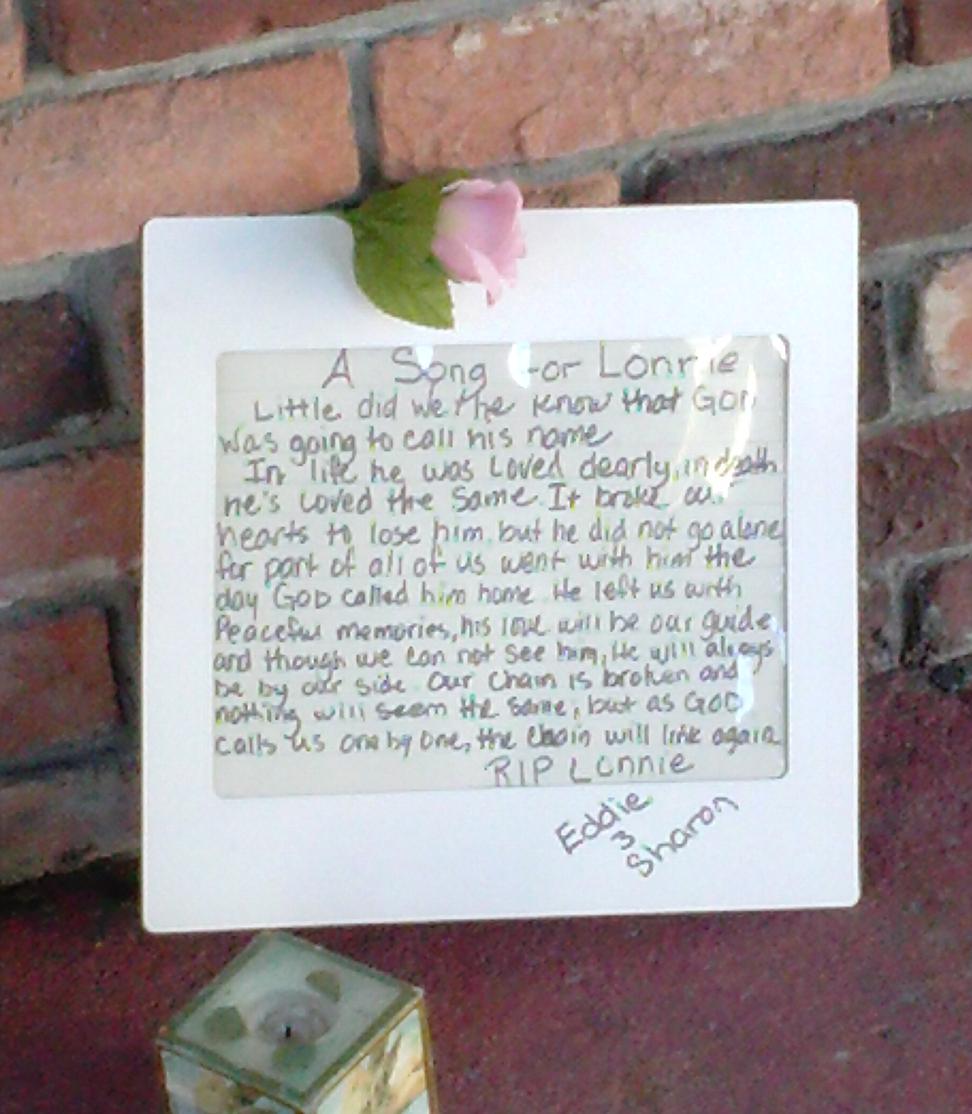 A Song for Lonnie
Little did we the know that GOD
was going to call his name
In life he was Loved dearly, in death
he's Loved the Same. It broke our
hearts to lose him. but he did not go alone
for part of all of us went with him the
day GOD called him home. He left us with
Peaceful memories, his love will be our guide
and though we can not see him, He will always
be by our side. Our Chain is broken and
nothing will seem the same, but as GOD
calls us one by one, the Chain will link again
RIP Lonnie
Eddie
3
Sharon